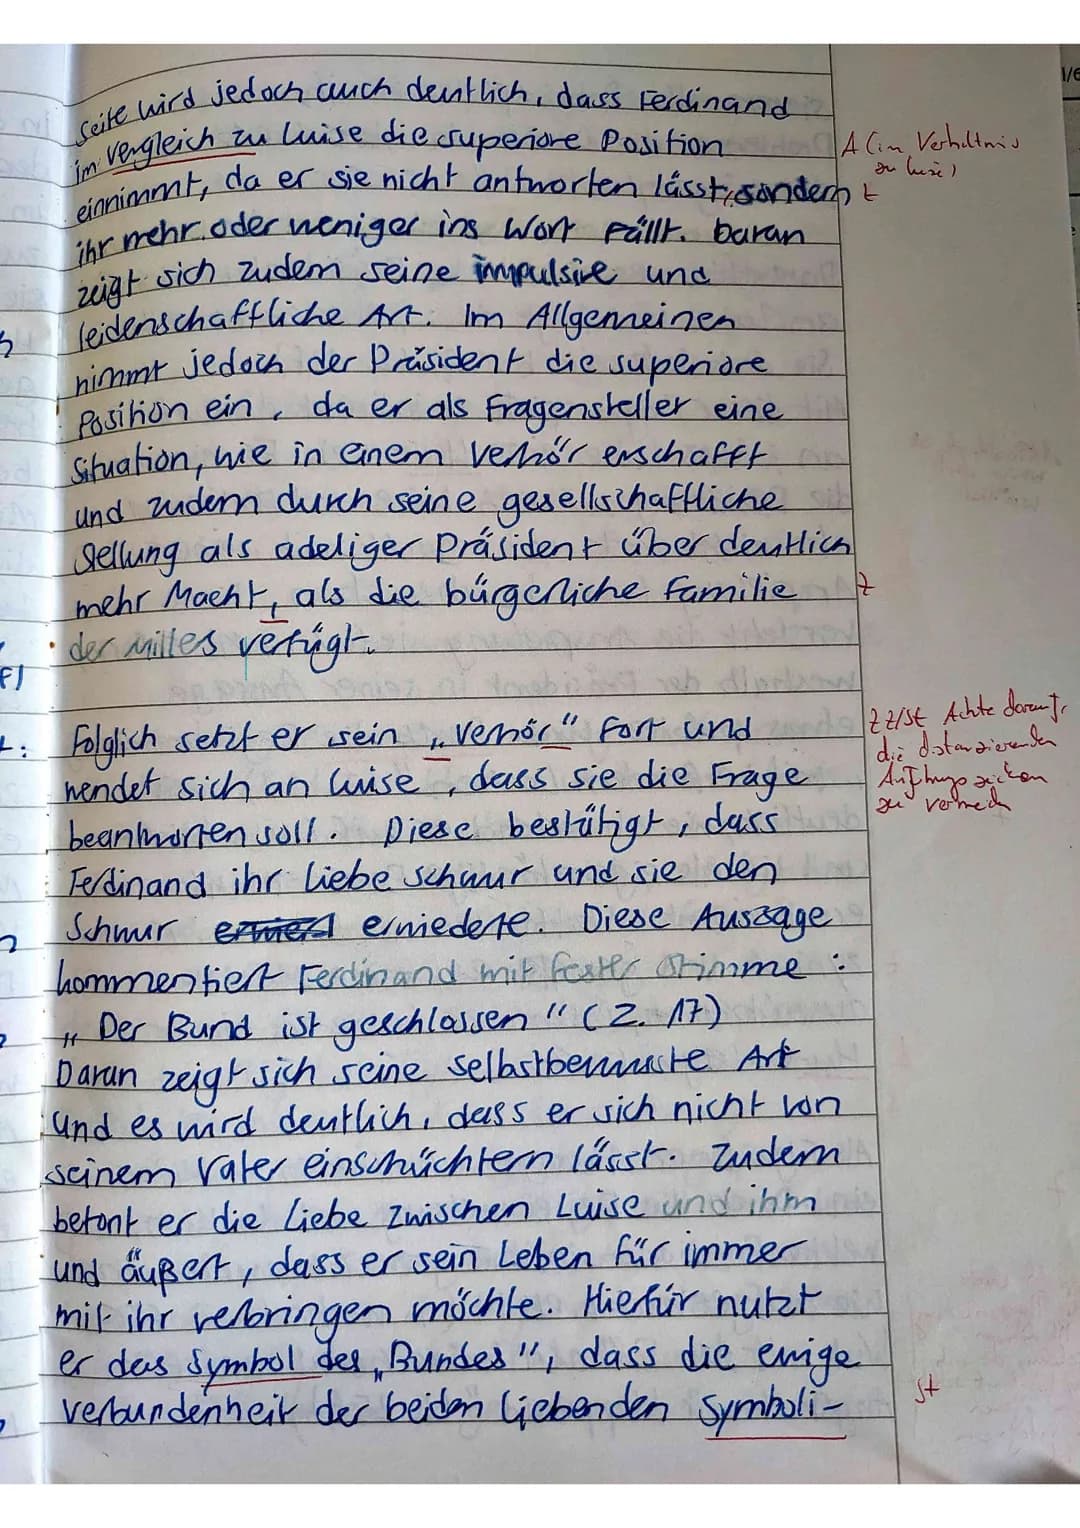 Seite wird jedoch auch deutlich, dass Ferdinand
im Vergleich zu Luise die superiore Position
A (im Verhältnis
zu Luise)
einnimmt, da er sie nicht antworten lässt, sondern
t
ihr mehr oder weniger ins Wort fällt. Daran
zeigt sich zudem seine impulsive und
leidenschaftliche Art. Im Allgemeinen
nimmt jedoch der Präsident die superiore
Position ein, da er als Fragensteller eine
Situation, wie in einem Verhör erschafft
und zudem durch seine gesellschaftliche
Stellung als adeliger Präsident über deutlich
mehr Macht, als die bürgerliche Familie
Z
der Milles verfügt.
F)
Folglich setzt er sein „Verhör" fort und
Z Z/St Achte darauf,
die distanzierenden
Anführungszeichen
zu vermeiden
wendet sich an Luise, dass sie die Frage
beantworten soll. Diese bestätigt, dass
Ferdinand ihr Liebe schwur und sie den
Schwur erwiederte. Diese Aussage
kommentiert Ferdinand mit fester Stimme:
„Der Bund ist geschlossen" (Z. 17)
Daran zeigt sich seine selbstbewusste Art
und es wird deutlich, dass er sich nicht von
seinem Vater einschüchtern lässt. Zudem
betont er die Liebe zwischen Luise und ihm
und äußert, dass er sein Leben für immer
mit ihr verbringen möchte. Hiefür nutzt
er das Symbol des „Bundes", dass die ewige
St
verbundenheit der beiden Liebenden Symboli-